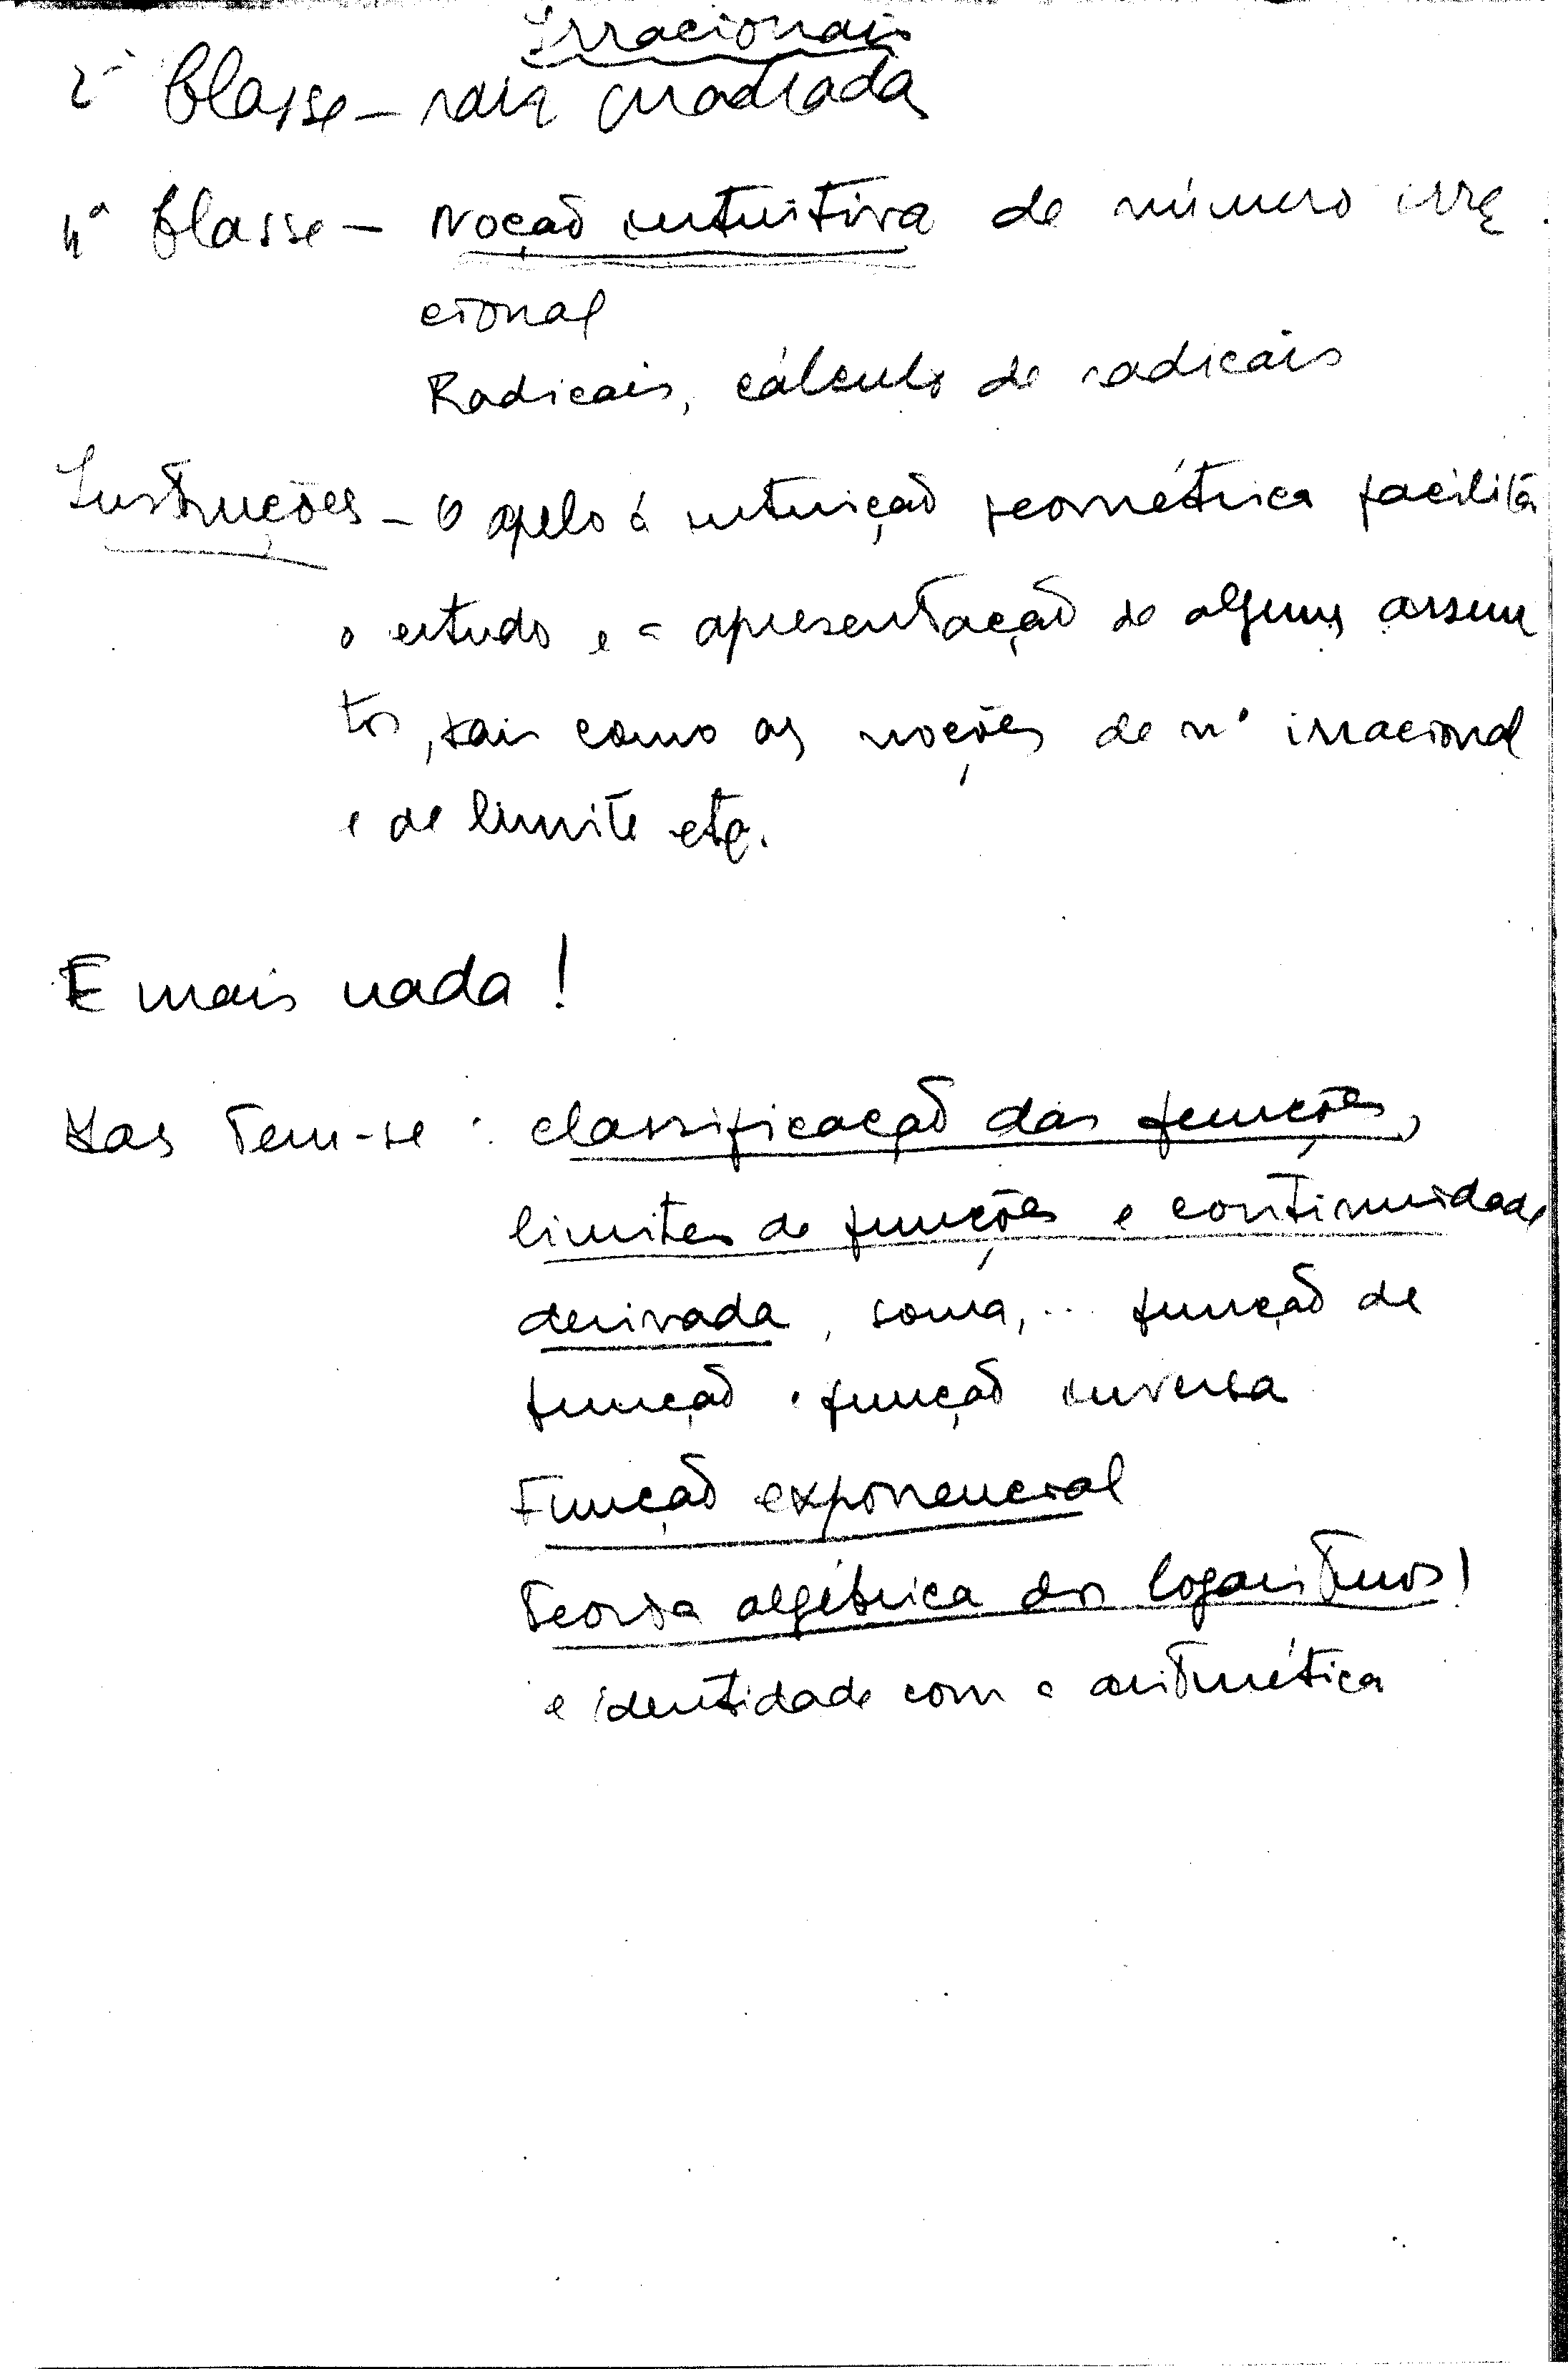 Irracionais
2ª Classe - raiz quadrada
4ª Classe - Noção intuitiva de número irra
cional
Radicais, cálculo de radicais
Instruções - O apelo à intuição geométrica facilita
o estudo e a apresentação de alguns assun
tos, tais como as noções de nº irracional
e de limite etc.
E mais nada!
Mas tem-se: classificação das funções,
limites de funções e continuidade
derivada, soma, ... função de
função e função inversa
Função exponencial
Teoria algébrica dos logaritmos!
e identidade com a aritmética